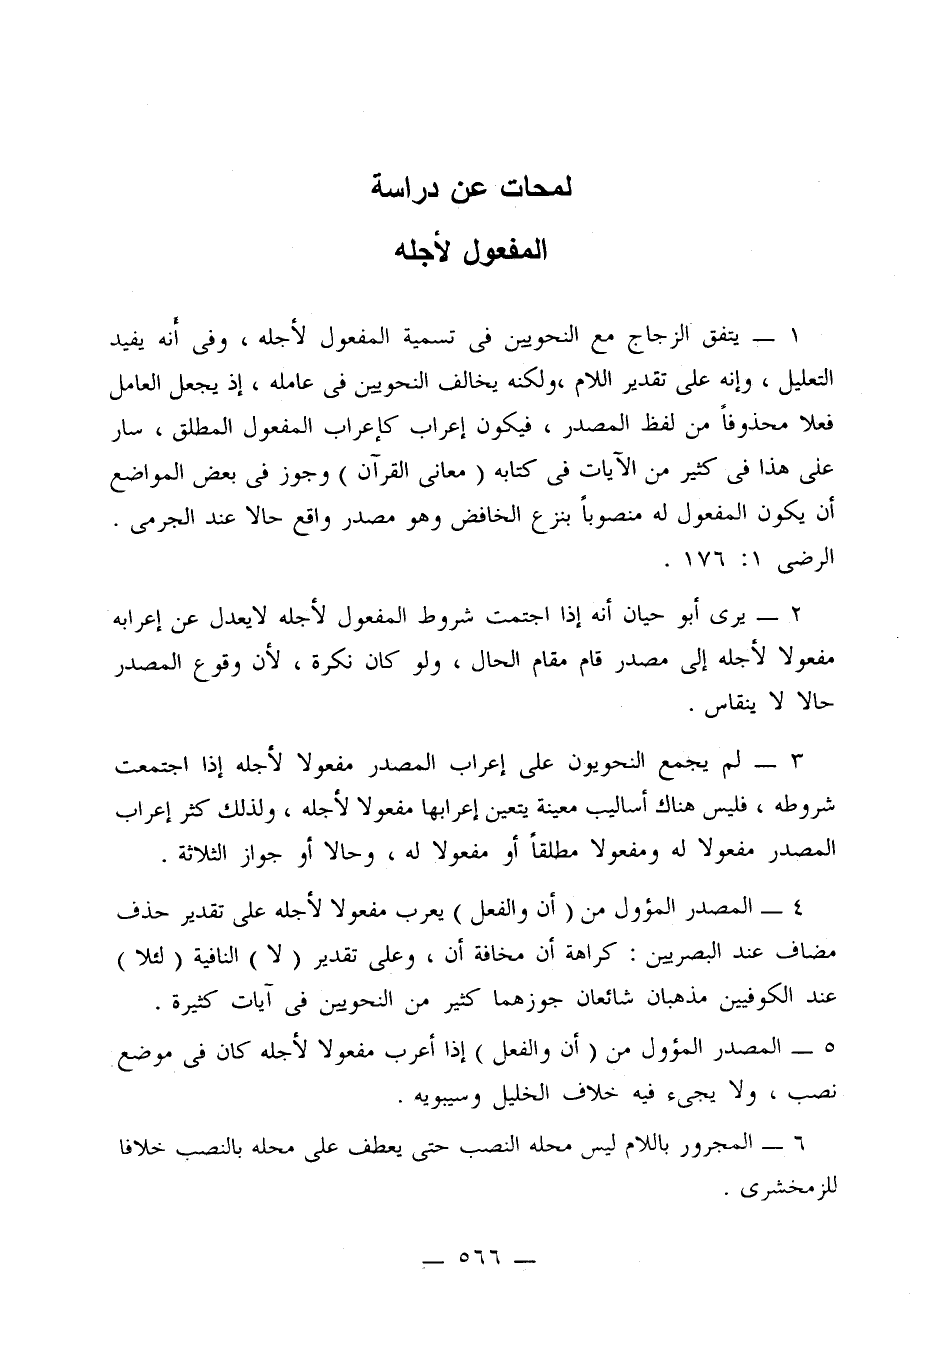 لمحات عن دراسة
المفعول لأجله
١ ـ يتفق الزجاج مع النحويين فى تسمية المفعول لأجله ، وفى أنه يفيد
التعليل ، وإنه على تقدير اللام ،ولكنه يخالف النحويين فى عامله ، إذ يجعل العامل
فعلا محذوفاً من لفظ المصدر ، فيكون إعراب كإعراب المفعول المطلق ، سار
على هذا فى كثير من الآيات فى كتابه ( معانى القرآن ) وجوز فى بعض المواضع
أن يكون المفعول له منصوباً بنزع الخافض وهو مصدر واقع حالا عند الجرمى .
الرضى ١: ١٧٦ .
٢ ـ يرى أبو حيان أنه إذا اجتمت شروط المفعول لأجله لايعدل عن إعرابه
مفعولا لأجله إلى مصدر قام مقام الحال ، ولو كان نكرة ، لأن وقوع المصدر
حالا لا ينقاس .
٣ ـ لم يجمع النحويون على إعراب المصدر مفعولا لأجله إذا اجتمعت
شروطه ، فليس هناك أساليب معينة يتعين إعرابها مفعولا لأجله ، ولذلك كثر إعراب
المصدر مفعولا له ومفعولا مطلقاً أو مفعولا له ، وحالا أو جواز الثلاثة .
٤ ـ المصدر المؤول من ( أن والفعل ) يعرب مفعولا لأجله على تقدير حذف
مضاف عند البصريين : كراهة أن مخافة أن ، وعلى تقدير ( لا ) النافية ( لئلا )
عند الكوفيين مذهبان شائعان جوزهما كثير من النحويين فى آيات كثيرة .
٥ ـ المصدر المؤول من ( أن والفعل ) إذا أعرب مفعولا لأجله كان فى موضع
نصب ، ولا يجىء فيه خلاف الخليل وسيبويه .
٦ ـ المجرور باللام ليس محله النصب حتى يعطف على محله بالنصب خلافا
للزمخشرى .
ـ ٥٦٦ ـ